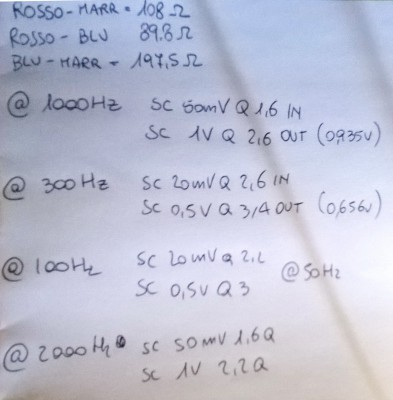 ROSSO-MARR = 108 Ω
ROSSO-BLU 89.8 Ω
BLU-MARR = 197,5 Ω
@ 1000Hz SC 50mV Q 1,6 IN
SC 1V Q 2,6 OUT (0,935V)
@ 300Hz SC 20mV Q 2,6 IN
SC 0,5V Q 3,4 OUT (0,656V)
@ 100Hz SC 20mV Q 2,2
SC 0,5V Q 3 @50Hz
@ 2000Hz SC 50mV 1,6Q
SC 1V 2,2Q